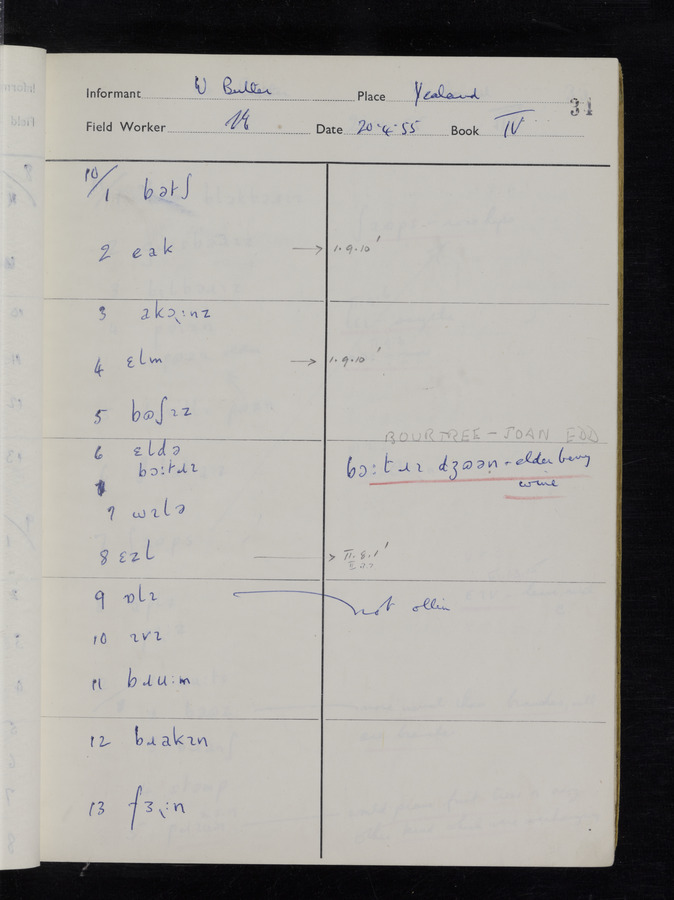 Informant W Butler Place Yealand 31
Field Worker Date 20·4·55 Book IV
10/1 bəɹʃ
2 eak → 1.9.10'
3 akɔ˞:nz
4 ɛlm → 1.9.10'
5 bɷʃɪz
BOURTREE - JOAN EDD
6 ɛldə
bɔ:tɹɪ bɔ:tɹɪ dʒɷən - elder berry
wine
7 ɷɪlə
8 ɛzl → II.8.1'
9 ɒlɪ not ollin
10 ɪvɪ
11 bɹu:m
12 bɹakɪn
13 fɜ˞:n